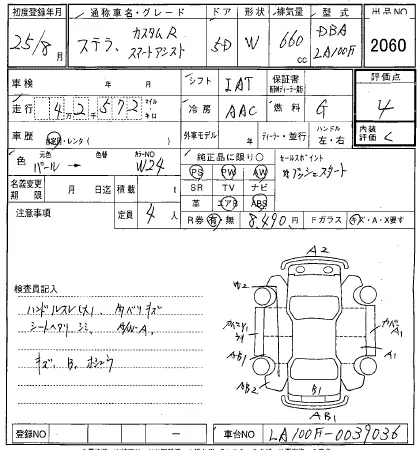 初度登録年月 通称車名・グレード ドア 形状 排気量 型式 出品NO
25/8月 ステラ カスタムR スマートアシスト 5D W 660cc DBA LA100F 2060
車検 年 月 シフト IAT 保証書 評価点
走行 42572 マイル キロ 冷房 AAC 燃料 G 4
車歴 自家用・レンタ( ) 外車モデル 年 ディーラー・並行 ハンドル 左・右 内装評価 C
色 元色 パール → 色替 カラーNO W24 純正品に限り○ セールスポイント
名義変更期限 月 日迄 積載 t PS PW AW プッシュスタート
SR TV ナビ
注意事項 定員 4人 革 エアB ABS
R券 有・無 8,490円 Fガラス キズ・A・X要す
検査員記入
ハンドルスレ(大)、
シートヘタリ シミ AW-A、
キズ、B、
A2
W2
A1
A1
AB1
AB2
B1
AB1
登録NO 車台NO LA100F-0039036